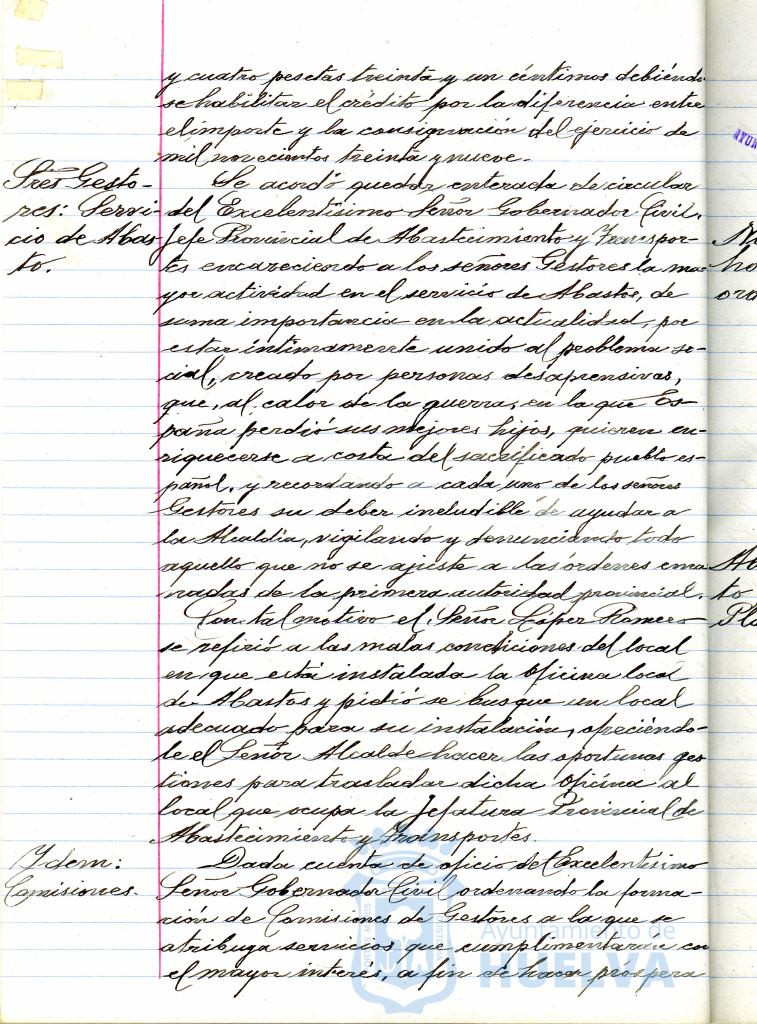 y cuatro pesetas treinta y un céntimos debiendo
se habilitar el crédito por la diferencia entre
el importe y la consignación del ejercicio de
mil novecientos treinta y nueve.
Sres Gesto-
res: Servi-
cio de Abas-
to.
Se acordó quedar enterada de circular
del Excelentísimo Señor Gobernador Civil,
Jefe Provincial de Abastecimiento y Transpor-
tes encareciendo a los señores Gestores la ma-
yor actividad en el servicio de Abastos, de
suma importancia en la actualidad, por
estar íntimamente unido al problema so-
cial, creado por personas desaprensivas,
que, al calor de la guerra, en la que Es-
paña perdió sus mejores hijos, quieren en-
riquecerse a costa del sacrificado pueblo es-
pañol, y recordando a cada uno de los señores
Gestores su deber ineludible de ayudar a
la Alcaldía, vigilando y denunciando todo
aquello que no se ajuste a las órdenes ema-
nadas de la primera autoridad provincial.
Con tal motivo el Señor López Romero
se refirió a las malas condiciones del local
en que está instalada la oficina local
de Abastos y pidió se busque un local
adecuado para su instalación, ofreciéndo-
le el Señor Alcalde hacer las oportunas ges
tiones para trasladar dicha oficina al
local que ocupa la Jefatura Provincial de
Abastecimiento y Transportes.
Ydem:
Comisiones.
Dada cuenta de oficio del Excelentísimo
Señor Gobernador Civil ordenando la forma-
ción de Comisiones de Gestores a la que se
atribuya servicios que cumplimentaran con
el mayor interés, a fin de hacer próspera
Ayuntamiento de
HUELVA